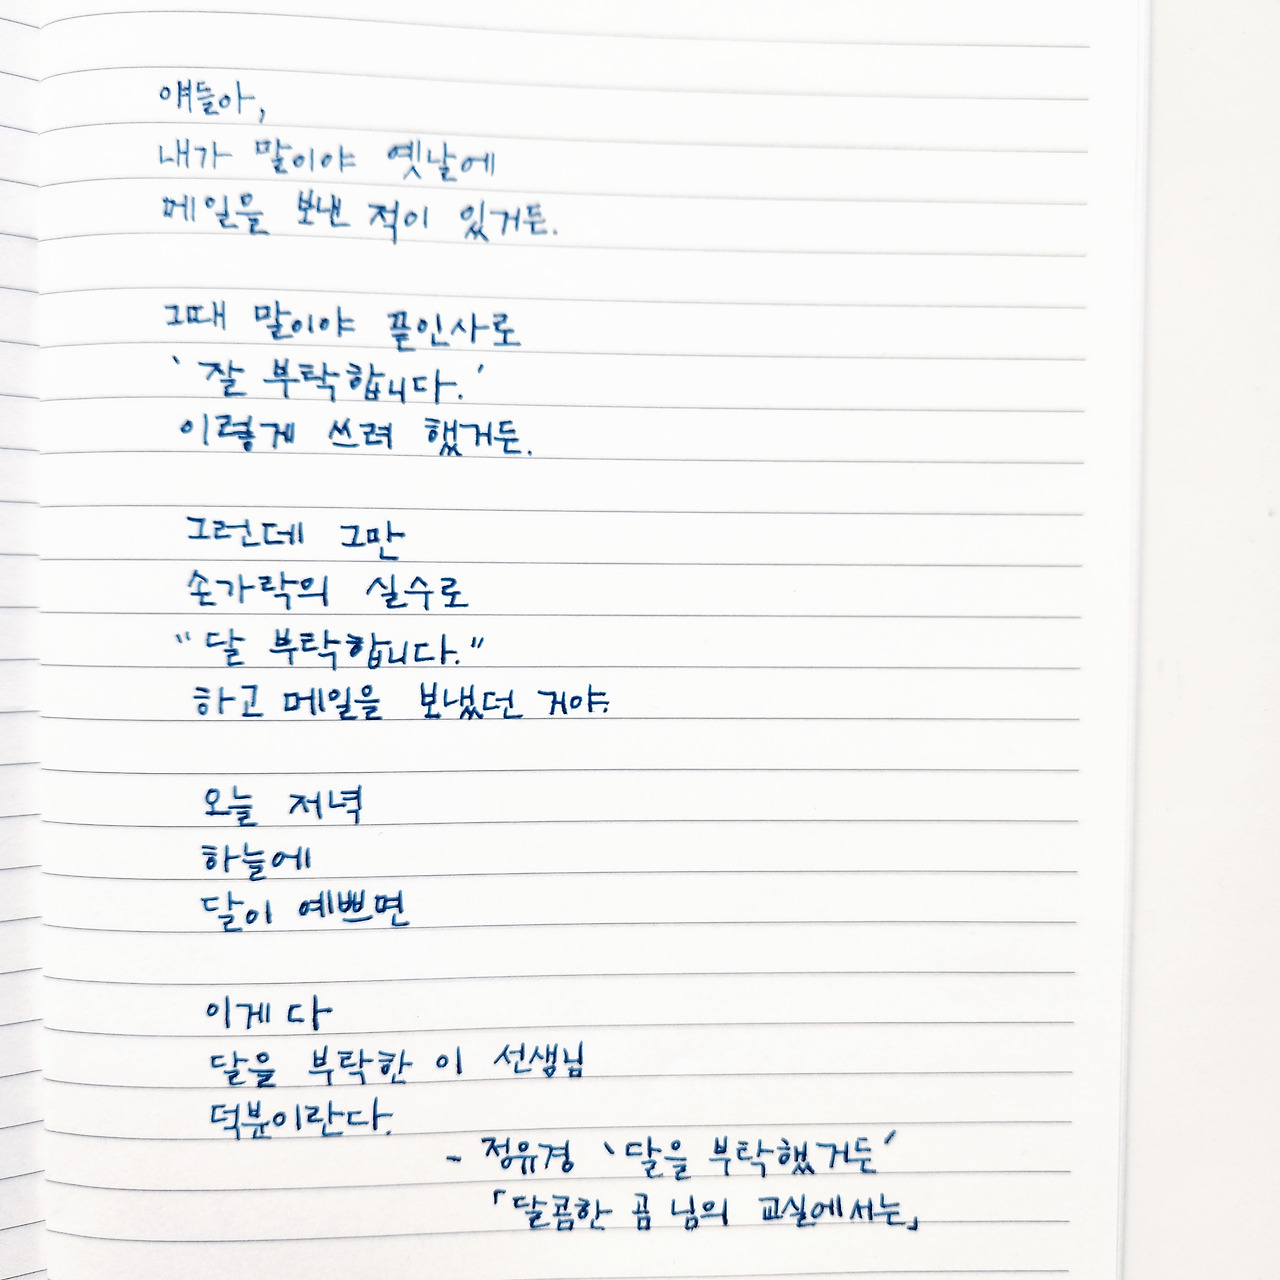 얘들아,
내가 말이야 옛날에
메일을 보낸 적이 있거든.
그때 말이야 끝인사로
'잘 부탁합니다.'
이렇게 쓰려 했거든.
그런데 그만
손가락의 실수로
"달 부탁합니다."
하고 메일을 보냈던 거야.
오늘 저녁
하늘에
달이 예쁘면
이게 다
달을 부탁한 이 선생님
덕분이란다.
- 정유경 '달을 부탁했거든'
「달콤한 곰 님의 교실에서는」